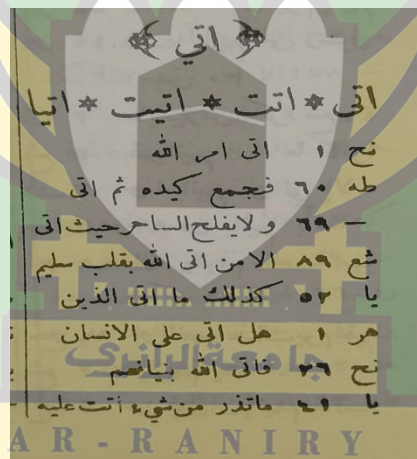 ﴿ اتي ﴾
اتى * اتت * اتيت * اتيا
نح ١ اتى امر الله
طه ٦٠ فجمع كيده ثم اتى
— ٦٩ ولايفلح الساحرحيث اتى
شع ٨٩ الامن اتى الله بقلب سليم
يا ٥٢ كذلك ما اتى الذين
هر ١ هل اتى على الانسان
نح ٢٦ فاتى الله بنيانهم
يا ٤٢ ماتذر من شيء اتت عليه
جامعة الرانري
AR-RANIRY